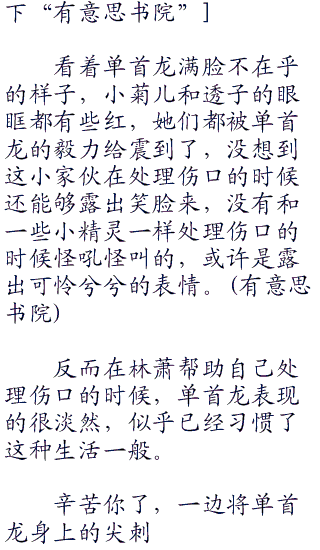 下“有意思书院”]
看着单首龙满脸不在乎
的样子，小菊儿和透子的眼
眶都有些红，她们都被单首
龙的毅力给震到了，没想到
这小家伙在处理伤口的时候
还能够露出笑脸来，没有和
一些小精灵一样处理伤口的
时候怪吼怪叫的，或许是露
出可怜兮兮的表情。(有意思
书院)
反而在林萧帮助自己处
理伤口的时候，单首龙表现
的很淡然，似乎已经习惯了
这种生活一般。
辛苦你了，一边将单首
龙身上的尖刺